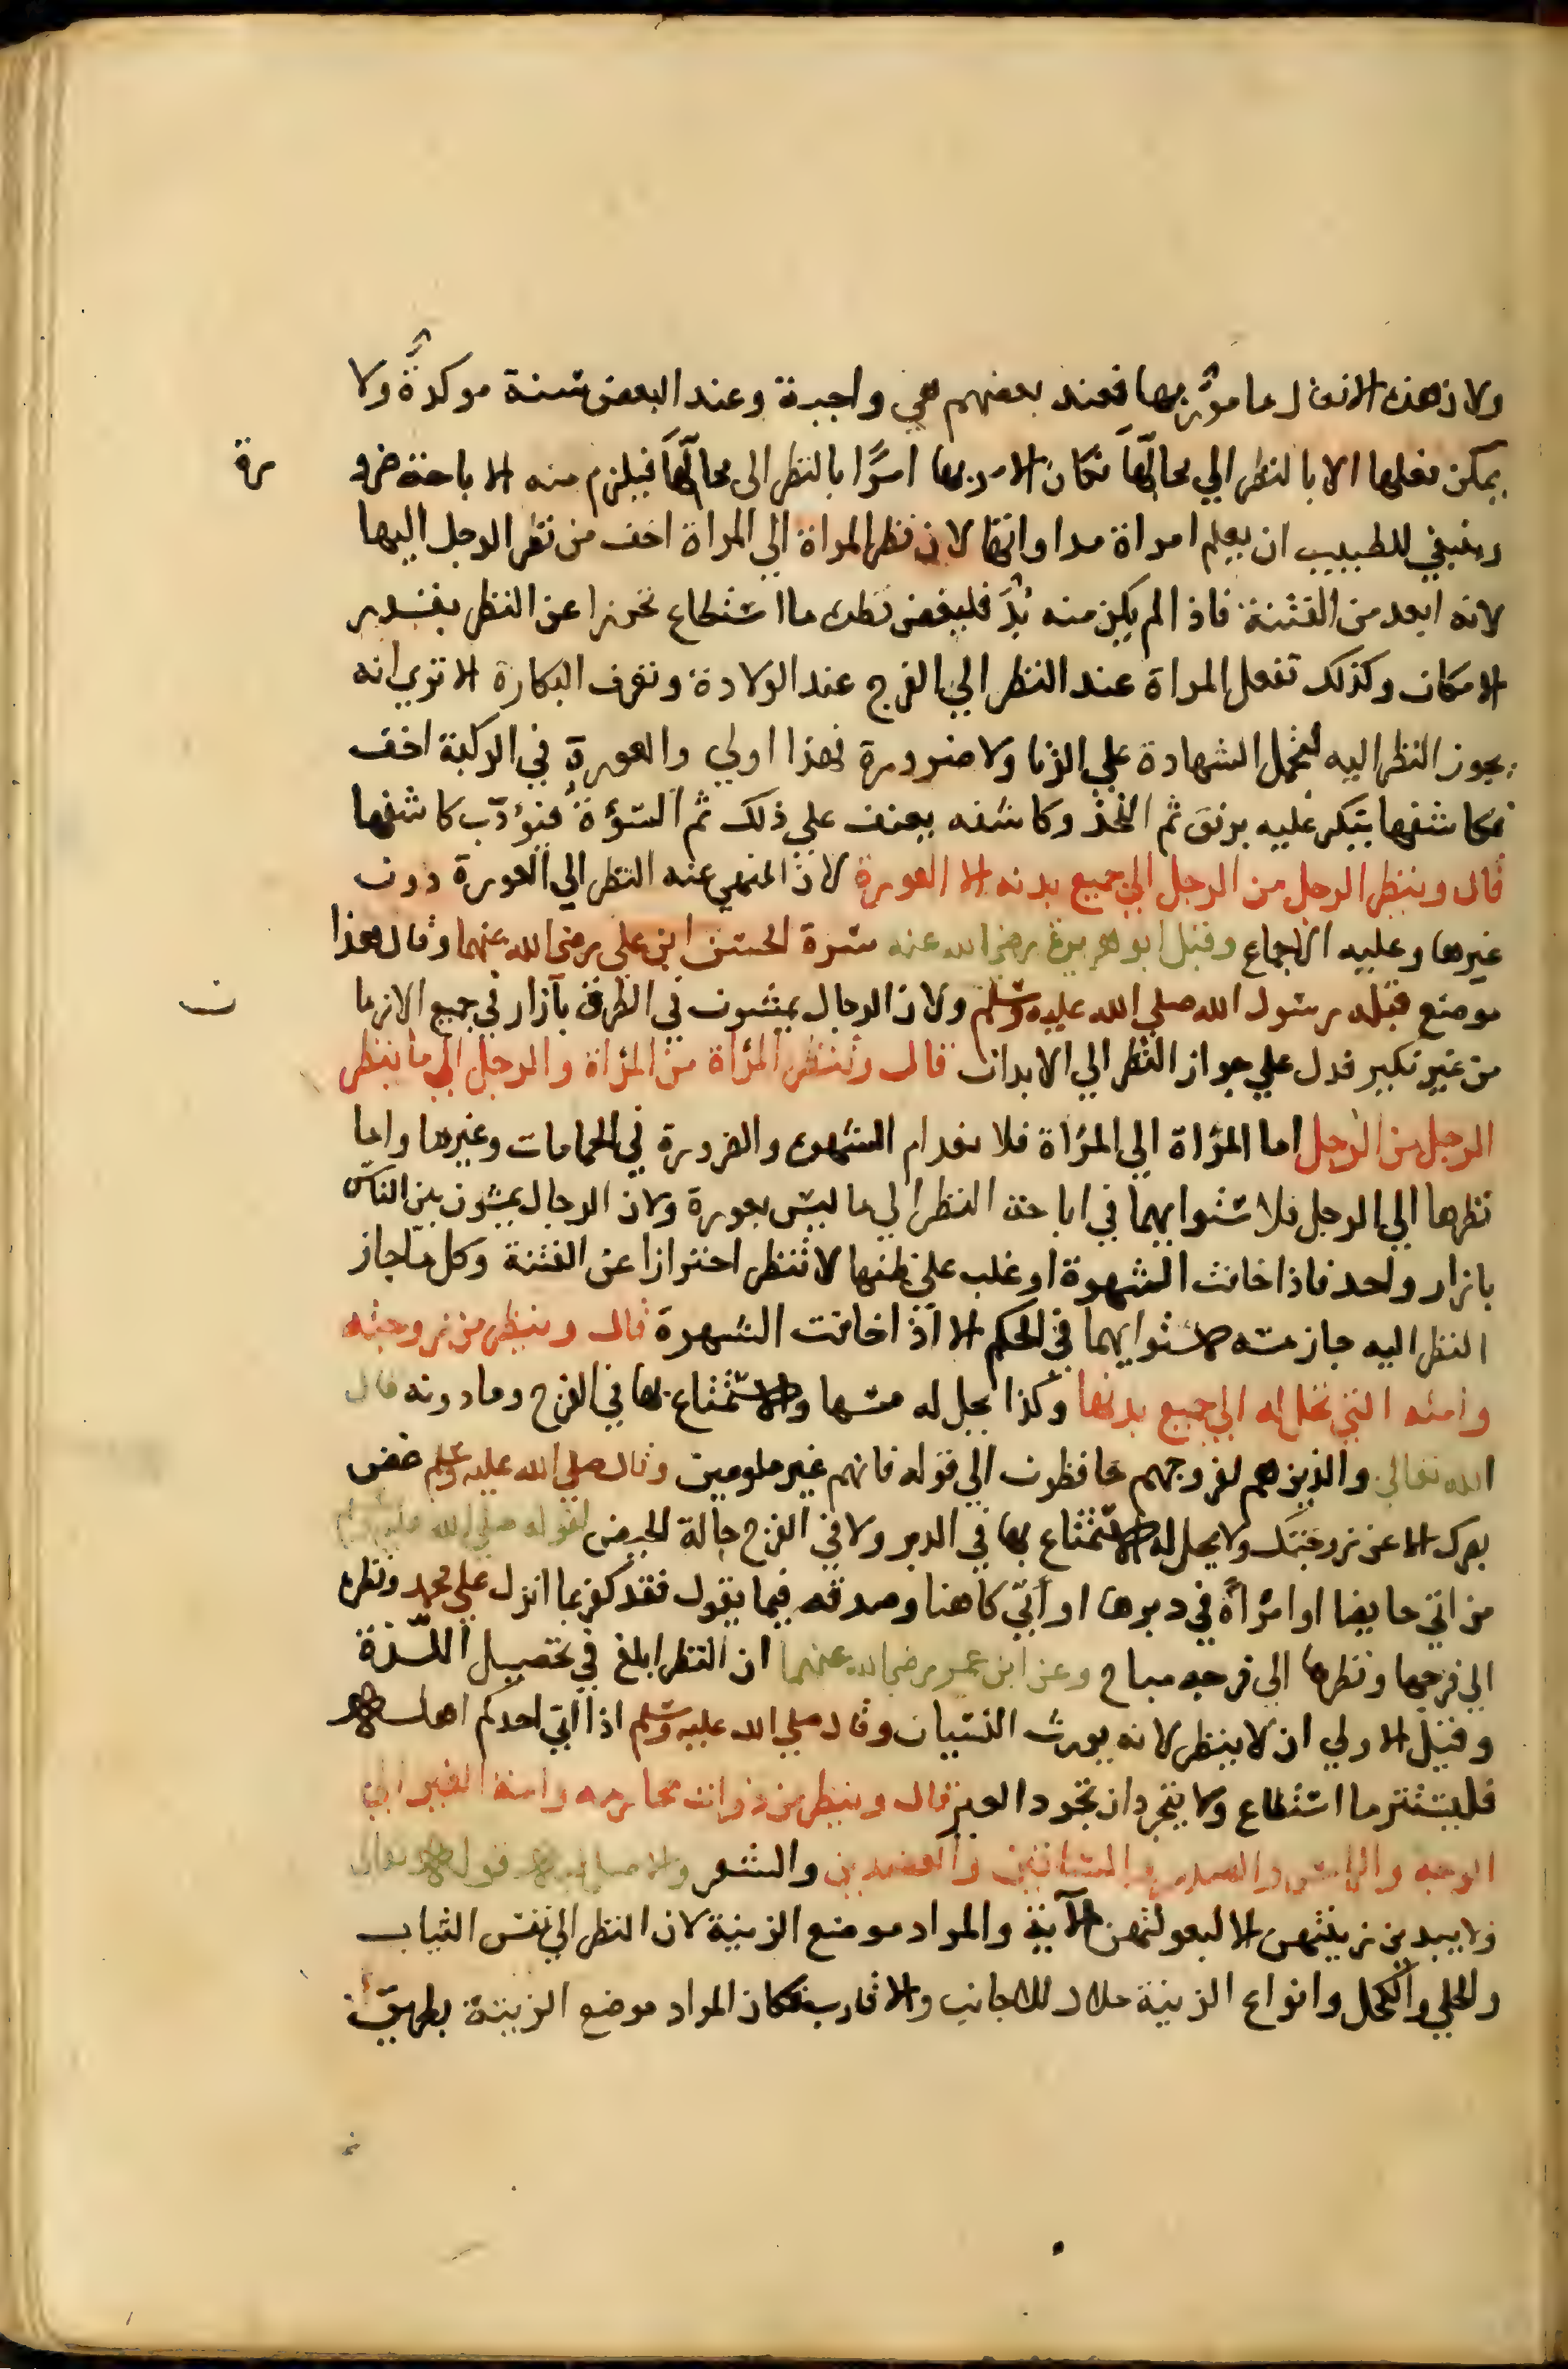 ولان هذه الافعال مامور بها فعند بعضهم هي واجبة وعند البعض سنة موكدة ولا
يمكن فعلها الا بالنظر الي محالها فكان الامر بها امرًا بالنظر الى محالها فيلزم منه الاباحة ضرو
رة
وينبغي للطبيب ان يعلم امراة مداواتها لان نظر المراة الي المراة اخف من نظر الرجل اليها
لانه ابعد من الفتنة فاذا لم يكن منه بُدّ فليغض نظره ما استطاع تحرزا عن النظر بقدر
الامكان وكذلك تفعل المراة عند النظر الي الفرج عند الولادة وتعرف البكارة الا تري انه
يجوز النظر اليه لتحمل الشهادة علي الزنا ولا ضرورة فهذا اولي والعورة في الركبة اخف
فكاشفها ينكر عليه برفق ثم الفخذ وكاشفه يعنف علي ذلك ثم السؤة فيؤدب كاشفها
قال وينظر الرجل من الرجل الي جميع بدنه الا العورة لان المنهي عنه النظر الي العورة دون
غيرها وعليه الاجماع وقبل ابو هريرة رضي الله عنه سرة الحسن ابن علي رضي الله عنهما وقال هذا
موضع قبله رسول الله صلي الله عليه وسلم ولان الرجال يمشون في الطرق بآزار في جميع الازما
ن
من غير نكير فدل علي جواز النظر الي الابدان قال وتنظر المرأة من المرأة والرجل الي ما ينظر
الرجل من الرجل اما المرأة الي المرأة فلانعدام الشهوة والضرورة في الحمامات وغيرها واما
نظرها الي الرجل فلاستوايهما في اباحة النظر الي ما ليس بعورة ولان الرجال يمشون بين الناس
بازار واحد فاذا خافت الشهوة او غلب علي ظنها لا تنظر احترازا عن الفتنة وكل ما جاز
النظر اليه جاز مسه لاستوايهما في الحكم الا اذا خافت الشهوة قال وينظر من زوجته
وامته التي تحل له الي جميع بدنها وكذا يحل له مسها والاستمتاع بها في الفرج وما دونه قال
الله تعالي والذين هم لفروجهم حافظون الي قوله فانهم غير ملومين وقال صلي الله عليه وسلم غض
بصرك الا عن زوجتك ولا يحل له الاستمتاع بها في الدبر ولا في الفرج حالة الحيض لقوله صلي الله عليه وسلم
من اتي حايضا او امرأة في دبرها او أتي كاهنا وصدقه فيما يقول فقد كفر بما انزل علي محمد ونظره
الي فرجها ونظرها الي فرجه مباح وعن ابن عمر رضي الله عنهما ان النظر ابلغ في تحصيل اللذة
وقيل الاولي ان لا ينظر لانه يورث النسيان وقال صلي الله عليه وسلم اذا اتي احدكم اهله
فليستتر ما استطاع ولا يتجردان تجرد العير قال وينظر من ذوات محارمه وامة الغير الي
الوجه والراس والصدر والساقين والعضدين والشعر والاصل فيه قوله تعالى
ولا يبدين زينتهن الا لبعولتهن الآية والمراد موضع الزينة لان النظر الي نفس الثياب
والحلي والكحل وانواع الزينة حلال للاجانب والاقارب فكان المراد موضع الزينة بطريق